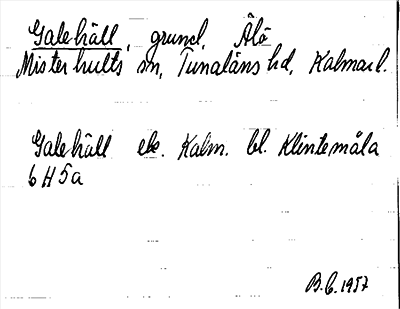 Galehäll, grund, Älö
Misterhults sn, Tunaläns hd, Kalmar l.
Galehäll ek. Kalm. bl. Klintemåla
6H5a
B.C. 1957